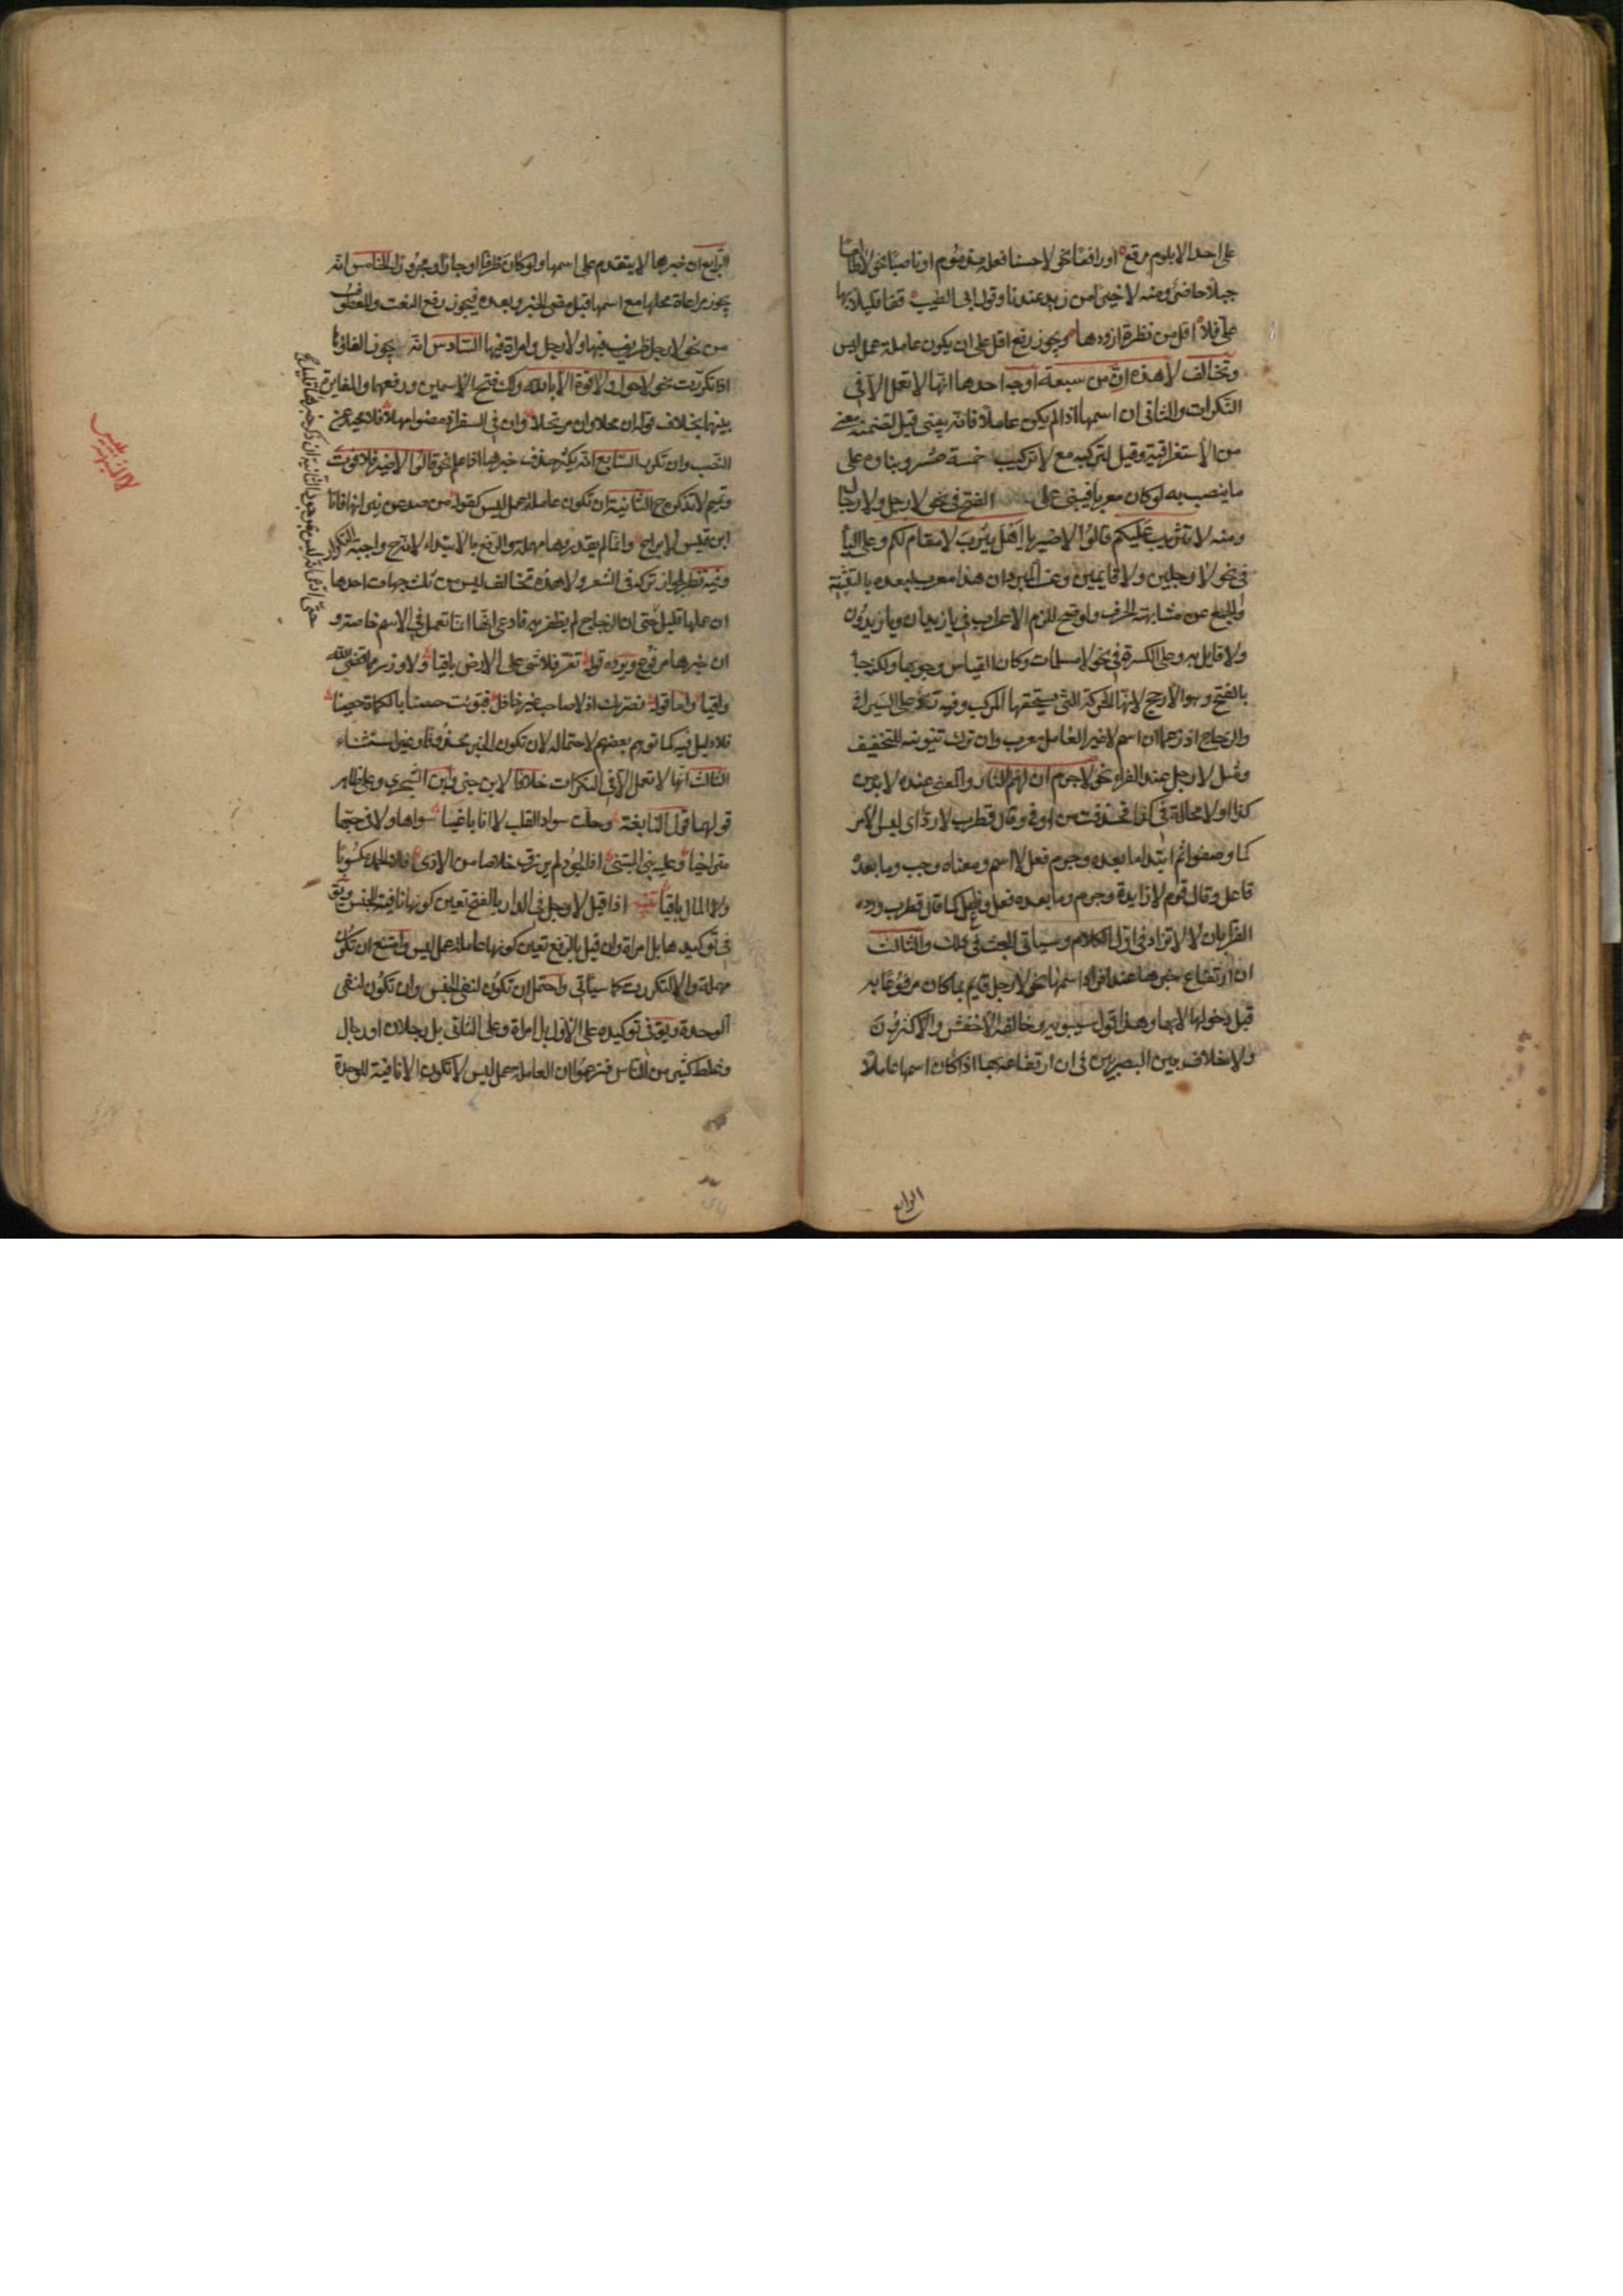 على احد الا بلوم مرقع او رافعا نحو لا حسنا فعله مذموم او ناصبا نحو لا طالعا
جبلا حاضر ومنه لا خيرا من زيد عندنا وقول ابى الطيب قفا قليلا بها
على فلا اقل من نظرة ازودها ويجوز رفع اقل على ان يكون عاملة عمل ليس
وتخالف لا هذه ان من سبعة اوجه احدها انها لا تعمل الا فى
النكرات والثانى ان اسمها اذا لم يكن عاملا فانه يبنى قيل لتضمنه معنى
من الاستغراقية وقيل لتركيبه مع لا تركيب خمسة عشر وبناوه على
ما ينصب به لو كان معربا فيبنى على الفتح فى نحو لا رجل ولا رجال
ومنه لا تثريب عليكم قالوا لا ضير يا اهل يثرب لا مقام لكم وعلى اليا
فى نحو لا رجلين ولا قايمين وعن المبرد ان هذا معرب لبعده بالتثنية
والجمع عن مشابهة الحرف ولو صح للزم الاعراب فى يا زيدان ويا زيدون
ولا قايل به وعلى الكسرة فى نحو لا مسلمات وكان القياس وجوبها ولكنه جا
بالفتح وهو الارجح لانها الحركة التى يستحقها المركب وفيه رد على السيرافى
والزجاج اذ زعما ان اسم لا غير العامل معرب وان ترك تنوينه للتخفيف
ومثل لا رجل عند الفراء نحو لا جرم ان لهم النار والمعنى عنده لا بد من
كذا او لا محالة فى كذا فحذفت من او فى وقال قطرب لا رد اى ليس الامر
كما وصفوا ثم ابتدا ما بعده وجرم فعل لا اسم ومعناه وجب وما بعده
فاعل وقال قوم لا زايدة وجرم وما بعده فعل وفاعل كما قال قطرب ورده
الفرا بان لا لا تزاد فى اول الكلام وسياتى البحث فى ذلك والثالث
ان ارتفاع خبرها عند افراد اسمها نحو لا رجل قايم بما كان مرفوعا به
قبل دخولها لا بها وهذا قول سيبويه وخالفه الاخفش والاكثرون
ولا خلاف بين البصريين فى ان ارتفاعه بها اذا كان اسمها عاملا
الرابع
الرابع ان خبرها لا يتقدم على اسمها ولو كان ظرفا او جارا ومجرورا الخامس انه
يجوز مراعاة محلها مع اسمها قبل مضى الخبر وبعده فيجوز رفع النعت والمعطوف
من نحو لا رجل ظريف فيها ولا رجل وامراة فيها السادس انه يجوز الغاؤها
اذا تكررت نحو لا حول ولا قوة الا بالله ولك فتح الاسمين ورفعهما والمغايرة
بينهما بخلاف قوله ان محلا وان مرتحلا وان فى السفر اذ مضوا مهلا فلا محيد عن
النصب وان تكون السابع انه يكثر حذف خبرها اذا علم نحو قالوا لا ضير فلا فوت
وتميم لا تذكره ح الثانية ان تكون عاملة عمل ليس كقوله من صد عن نيرانها فانا
ابن قيس لا براح وانما لم يقدروها مهملة والرفع بالابتداء لانه ح واجبة التكرار
وفيه نظر لجواز تركه فى الشعر ولا هذه تخالف ليس من ثلث جهات احدها
ان عملها قليل حتى ان الزجاج لم يظفر به فادعى انها انما تعمل فى الاسم خاصة و
ان خبرها مرفوع ويرده قوله تعز فلا شى على الارض باقيا ولا وزر مما قضى الله
واقيا واما قوله نصرتك اذ لا صاحب غير خاذل فبوئت حصنا بالكماة حصينا
فلا دليل فيه كما توهم بعضهم لاحتماله لان تكون الخبر محذوفا وغير استثناء
الثالث انها لا تعمل الا فى النكرات خلافا لابن جنى وابن الشجرى وعلى ظاهر
قولهما قول النابغة وحلت سواد القلب لا انا باغيا سواها ولا فى حبها
متراخيا وعليه بنى المتنبى اذا الجود لم يرزق خلاصا من الاذى فلا الحمد مكسوبا
ولا المال باقيا تنبيه اذا قيل لا رجل فى الدار بالفتح تعين كونها نافية للجنس ويق
فى توكيده بل امراة وان قيل بالرفع تعين كونها عاملة عمل ليس وامتنع ان تكون
مهملة والا لتكررت كما سياتى واحتمل ان تكون لنفى الجنس وان تكون لنفى
الوحدة ويق فى توكيده على الاول بل امراة وعلى الثانى بل رجلان او رجال
وغلط كثير من الناس فزعموا ان العاملة عمل ليس لا تكون الا نافية للوحدة